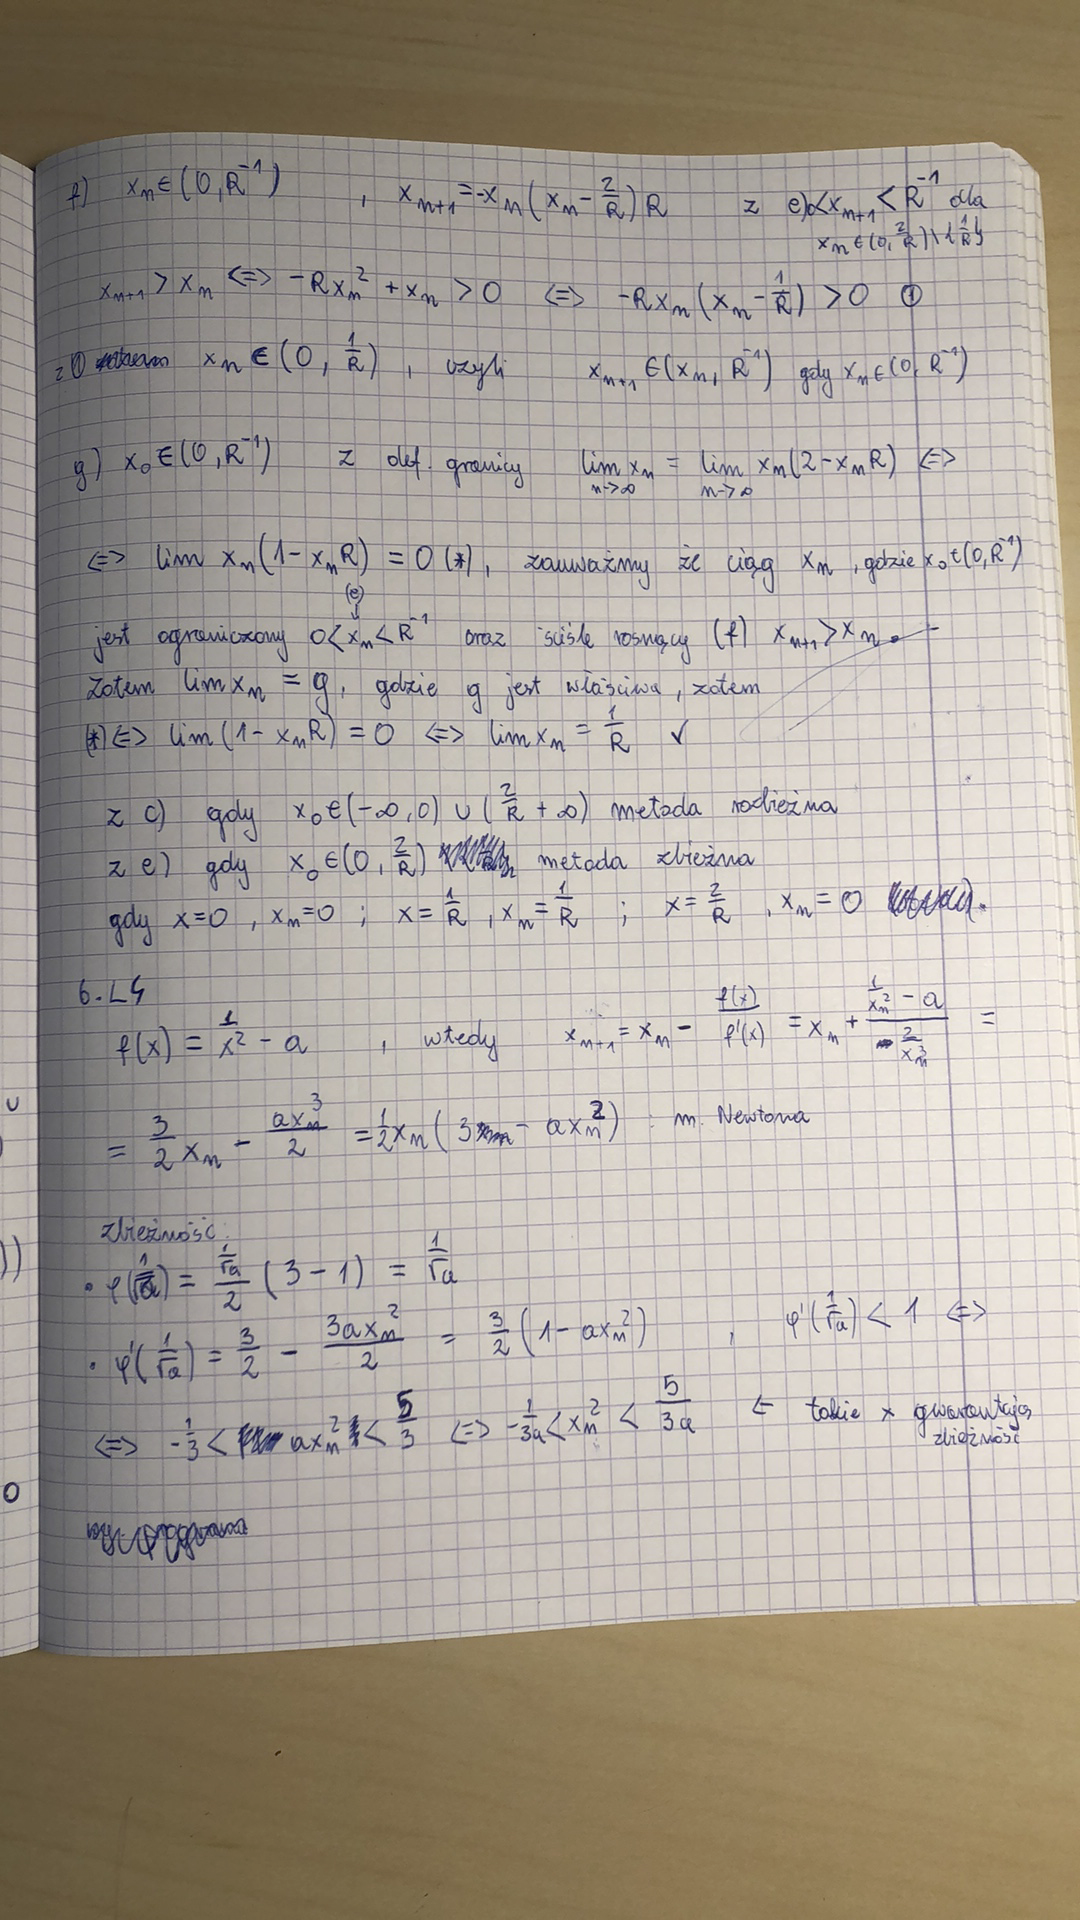 f) xₙ∈(0,R⁻¹) , xₙ₊₁=-xₙ(xₙ-2/R)R z e) 0<xₙ₊₁<R⁻¹ dla
xₙ∈(0,2/R)\{1/R}
xₙ₊₁>xₙ <=> -Rxₙ²+xₙ>0 <=> -Rxₙ(xₙ-1/R)>0 ①
z① xₙ∈(0,1/R), czyli xₙ₊₁∈(xₙ,R⁻¹) gdy xₙ∈(0,R⁻¹)
g) x₀∈(0,R⁻¹) z def. granicy lim xₙ = lim xₙ(2-xₙR) <=>
n->∞ n->∞
<=> lim xₙ(1-xₙR)=0 (*), zauważmy że ciąg xₙ, gdzie x₀∈(0,R⁻¹)
(e)
↓
jest ograniczony 0<xₙ<R⁻¹ oraz ściśle rosnący (f) xₙ₊₁>xₙ
Zatem lim xₙ = g, gdzie g jest właściwa, zatem
(*)<=> lim(1-xₙR)=0 <=> lim xₙ = 1/R ✓
z c) gdy x₀∈(-∞,0)∪(2/R +∞) metoda rozbieżna
z e) gdy x₀∈(0,2/R) metoda zbieżna
gdy x=0, xₙ=0 ; x=1/R, xₙ=1/R ; x=2/R, xₙ=0
6.L4
f(x)=1/x²-a , wtedy xₙ₊₁=xₙ-f(x)/f'(x) = xₙ+(1/xₙ²-a)/(2/xₙ³) =
= 3/2 xₙ - axₙ³/2 = 1/2 xₙ(3 - axₙ²) m. Newtona
zbieżność:
• φ(1/√a) = (1/√a)/2 (3-1) = 1/√a
• φ'(1/√a) = 3/2 - 3axₙ²/2 = 3/2(1-axₙ²) , φ'(1/√a)<1 <=>
<=> -1/3 < axₙ² < 5/3 <=> -1/3a<xₙ²<5/3a ← takie x gwarantują
zbieżność